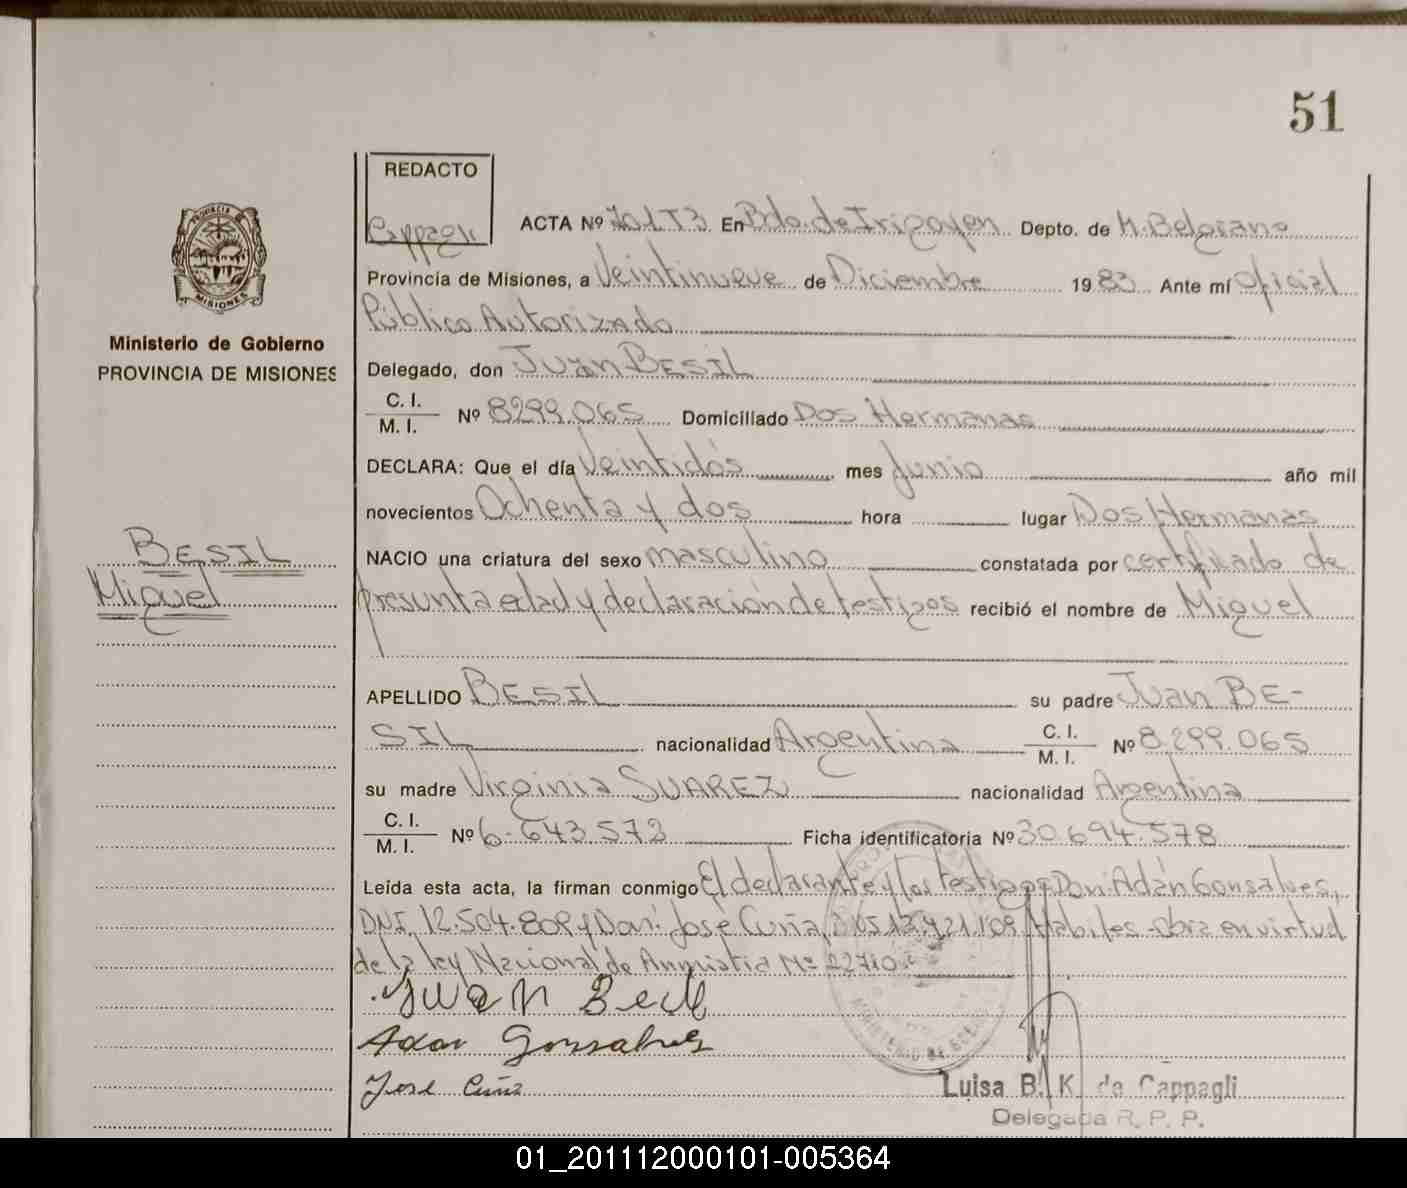 51
REDACTO
Cappagli
ACTA Nº 101 T3 En Bdo. de Irigoyen Depto. de M. Belgrano
Provincia de Misiones, a Veintinueve de Diciembre 1983 Ante mí Oficial
Público Autorizado
PROVINCIA DE
MISIONES
Ministerio de Gobierno
PROVINCIA DE MISIONES
Delegado, don Juan BESIL
C. I.
M. I. Nº 8299.065 Domiciliado Dos Hermanas
DECLARA: Que el día Veintidós mes Junio año mil
novecientos Ochenta y dos hora lugar Dos Hermanas
BESIL
Miguel
NACIO una criatura del sexo masculino constatada por certificado de
presunta edad y declaración de testigos recibió el nombre de Miguel
APELLIDO BESIL su padre Juan BE-
SIL nacionalidad Argentina C. I.
M. I. Nº 8.299.065
su madre Virginia SUAREZ nacionalidad Argentina
C. I.
M. I. Nº 6.643.573 Ficha identificatoria Nº 30.694.578
Leída esta acta, la firman conmigo El declarante y los testigos Don: Adán Gonsalves,
DNI. 12.504.809 y Don: José Cuña, Habiles. Obra en virtud
de la ley Nacional de Amnistia Nº 22710.
Juan Besil
Adan Gonsalves
José Cuña
Luisa B. K. de Cappagli
Delegada R. P. P.
01_201112000101-005364